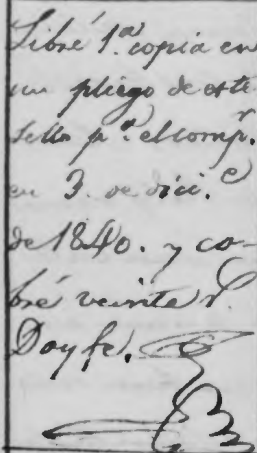 Libré 1.ª copia en
un pliego de este
sello p.ª el comp.r
en 3. de dici.e
de 1840. y co-
bré veinte r.
Doy fe.